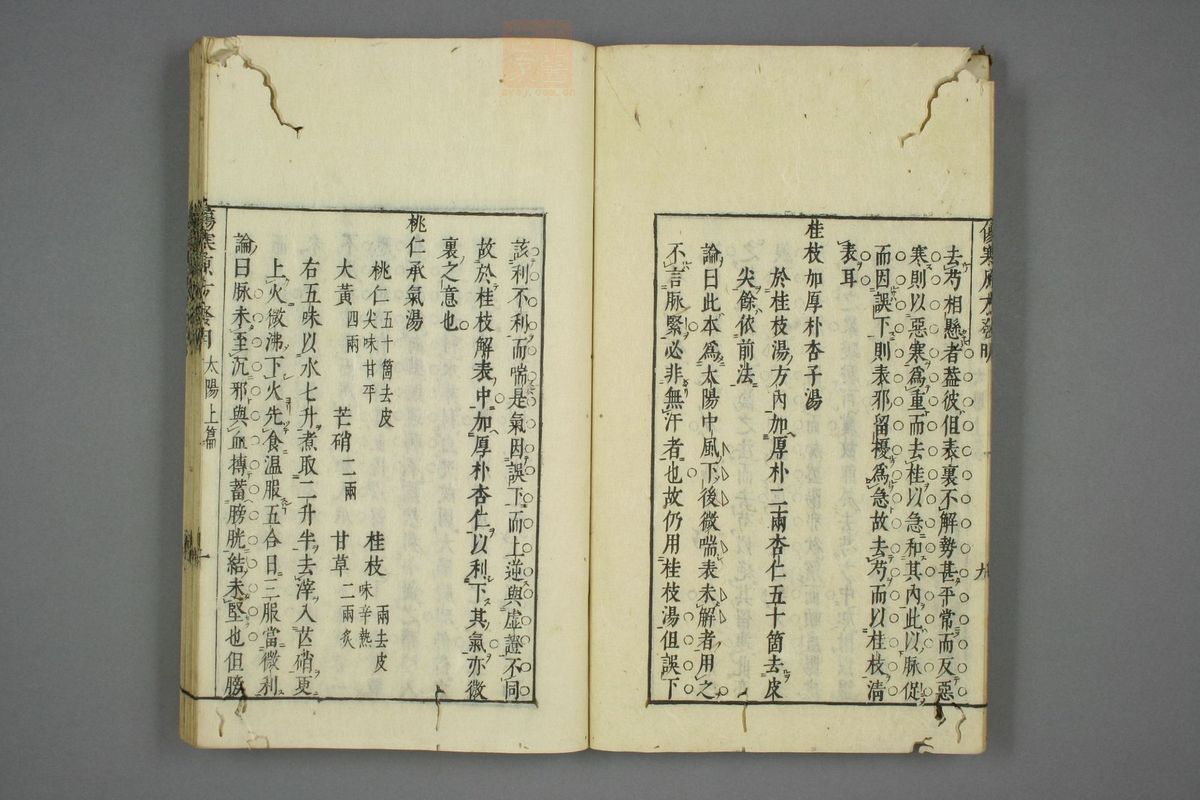 傷寒原方發明
去芍相懸者葢彼但表裏不解勢甚平常而反惡
寒則以惡寒爲重而去桂以急和其內此以脉促
而因誤下則表邪留擾爲急故去芍而以桂枝清
表耳
桂枝加厚朴杏子湯
於桂枝湯方內加厚朴二兩杏仁五十箇去皮
尖餘依前法
論曰此本爲太陽中風下後微喘表未解者用之
不言脉緊必非無汗者也故仍用桂枝湯但誤下
該利不利而喘是氣因誤下而上逆與虛證不同
故於桂枝解表中加厚朴杏仁以利下其氣亦微
裏之意也
桃仁承氣湯
桃仁五十箇去皮尖味甘平 桂枝二兩去皮味辛熱
大黃四兩 芒硝二兩 甘草二兩炙
右五味以水七升煮取二升半去滓入芒硝更
上火微沸下火先食温服五合日三服當微利
論曰脉未至沉邪與血摶蓄膀胱結未堅也但膀
傷寒原方發明 太陽上篇